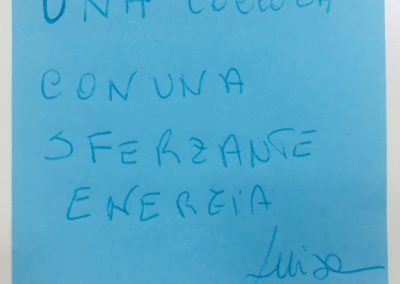 UNA
CON UNA
SFERZANTE
ENERGIA
Luisa